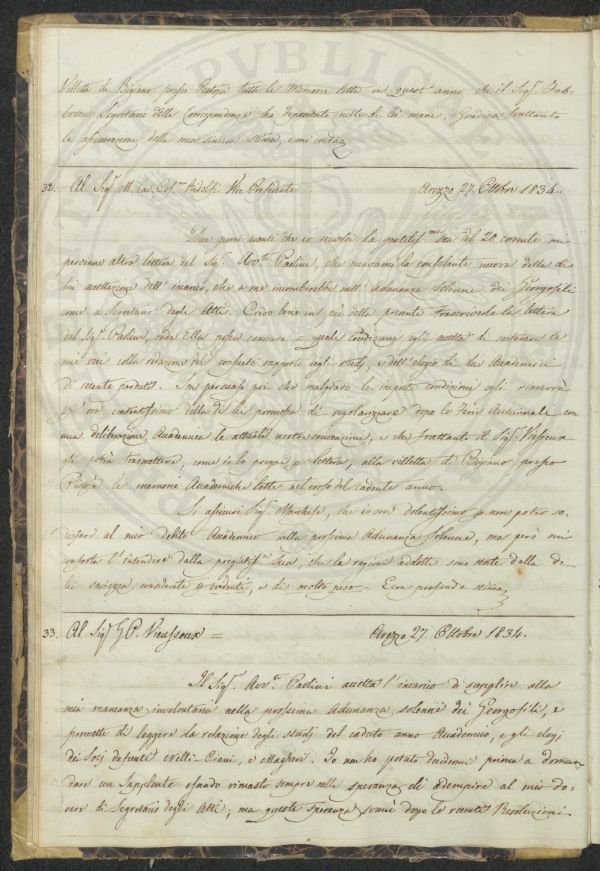 Villetta di Bigiano presso Pistoja tutte le Memorie lette in quest' anno che il Sig.r Fab-
broni Segretario delle Corrispondenze ha depositate nelle di lei mani. Gradisca frattanto
le assicurazioni della mia sincera stima, e mi creda
32. Al Sig.r M. Cav. Cos.mo Ridolfi Vice Presidente Arezzo 27. Ottobre 1834.
Due giorni avanti che io ricevessi la gratiss.ma sua de' 20 corrente mi
pervenne altra lettera del Sig.r Avv.to Paolini, che recavami la consolante nuova della di
lui accettazione dell' incarico, che a me incomberebbe nell' Adunanza solenne dei Georgofili
come a Segretario degli Atti. Credo bene
del Sig.r Paolini, onde Ella possa conoscere a quale condizione egli accetta di sostenere le
mie veci colla redazione del consueto rapporto degli studj, e dell' elogio di tre Accademici
di recente perduti. Son persuaso poi che malgrado le imposte condizioni egli rimarrà
per ora contentissimo della di lei promessa di regolarizzare dopo le Ferie Autunnali con
una deliberazione Accademica le attuali nostre convenzioni, e che frattanto il Sig.r Vieusseux
gli potrà trasmettere, come io lo prego per lettera, alla villetta di Bigiano presso
Pistoja le memorie Accademiche lette nel corso del cadente anno.
Si assicuri Sig.r Marchese, che io son dolentissimo per non poter so-
disfare al mio debito Accademico nella prossima Adunanza Solenne, ma però mi
conforta l' intendere dalla pregiatiss.ma sua, che le ragioni addotte sono state dalla di
lei saviezza considerate evidenti, e di molto peso. E con profonda stima
33. Al Sig.r G. P. Vieusseux = Arezzo 27. Ottobre 1834.
Il Sig.r Avv.to Paolini accetta l' incarico di supplire alla
mia mancanza involontaria nella prossima Adunanza solenne dei Georgofili, e
promette di leggere la relazione degli studj del caduto anno Accademico, e gli elogj
dei Socj defunti Nelli-Ciani, e Magheri. Io non ho potuto decidermi prima a doman-
dare un Supplente essendo rimasto sempre nella speranza di adempire al mio do-
vere di Segretario degli Atti, ma questa speranza svanì dopo le recenti Risoluzioni